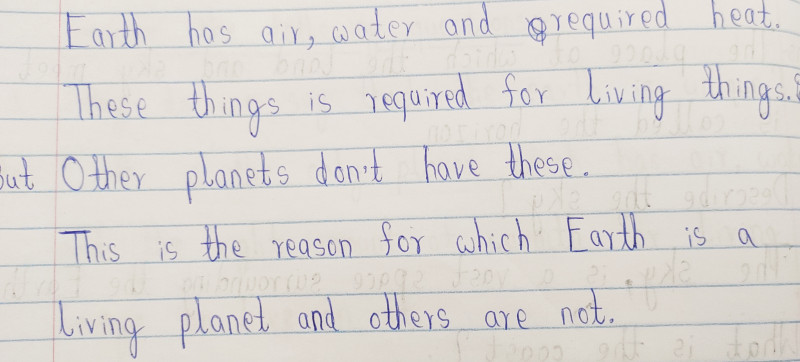 Earth has air, water and required heat.
These things is required for living things.
but Other planets don't have these.
This is the reason for which Earth is a
living planet and others are not.